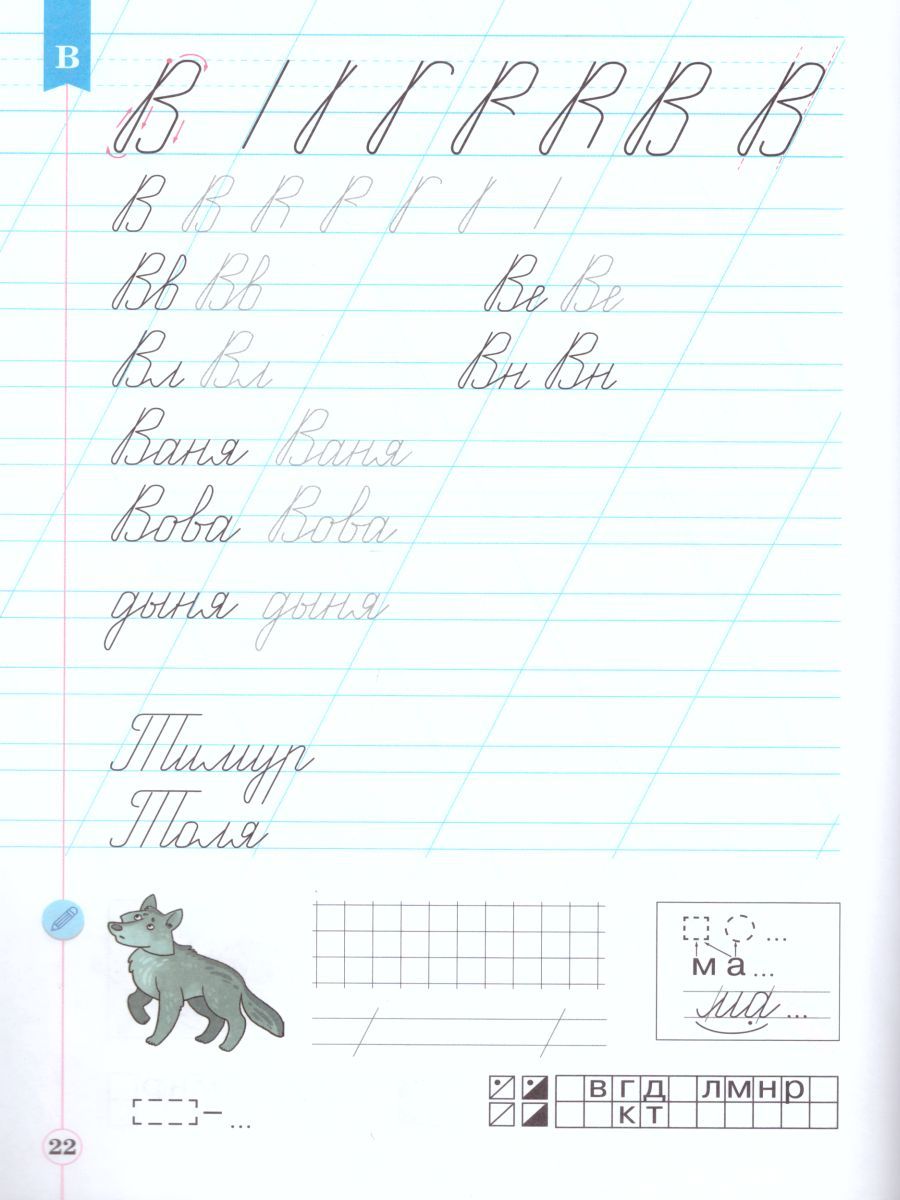 В
В В В
В В
Вв Вв Ве Ве
Вл Вл Вн Вн
Ваня Ваня
Вова Вова
дыня дыня
Тимур
Толя
...
м а ...
ма ...
в г д л м н р
– ...
к т
22